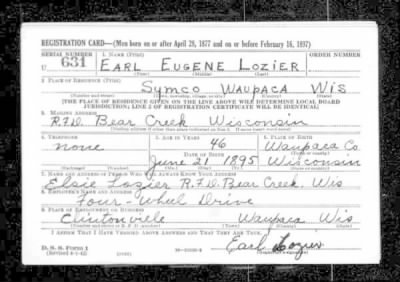 REGISTRATION CARD—(Men born on or after April 28, 1877 and on or before February 16, 1897)
SERIAL NUMBER 1. NAME (Print) ORDER NUMBER
U 631 EARL EUGENE LOZIER
(First) (Middle) (Last)
2. PLACE OF RESIDENCE (Print)
Symco Waupaca Wis
(Number and street) (Town, township, village, or city) (County) (State)
[THE PLACE OF RESIDENCE GIVEN ON THE LINE ABOVE WILL DETERMINE LOCAL BOARD
JURISDICTION; LINE 2 OF REGISTRATION CERTIFICATE WILL BE IDENTICAL]
3. MAILING ADDRESS
R.F.D. Bear Creek Wisconsin
[Mailing address if other than place indicated on line 2. If same insert word same]
4. TELEPHONE 5. AGE IN YEARS 6. PLACE OF BIRTH
none 46 Waupaca Co.
DATE OF BIRTH (Town or county)
June 21 1895 Wisconsin
(Exchange) (Number) (Mo.) (Day) (Yr.) (State or country)
7. NAME AND ADDRESS OF PERSON WHO WILL ALWAYS KNOW YOUR ADDRESS
Elsie Lozier R.F.D. Bear Creek, Wis
8. EMPLOYER'S NAME AND ADDRESS
Four Wheel Drive
9. PLACE OF EMPLOYMENT OR BUSINESS
Clintonville Waupaca Wis
(Number and street or R. F. D. number) (Town) (County) (State)
I AFFIRM THAT I HAVE VERIFIED ABOVE ANSWERS AND THAT THEY ARE TRUE.
D. S. S. Form 1
(Revised 4-1-42) Earl Lozier